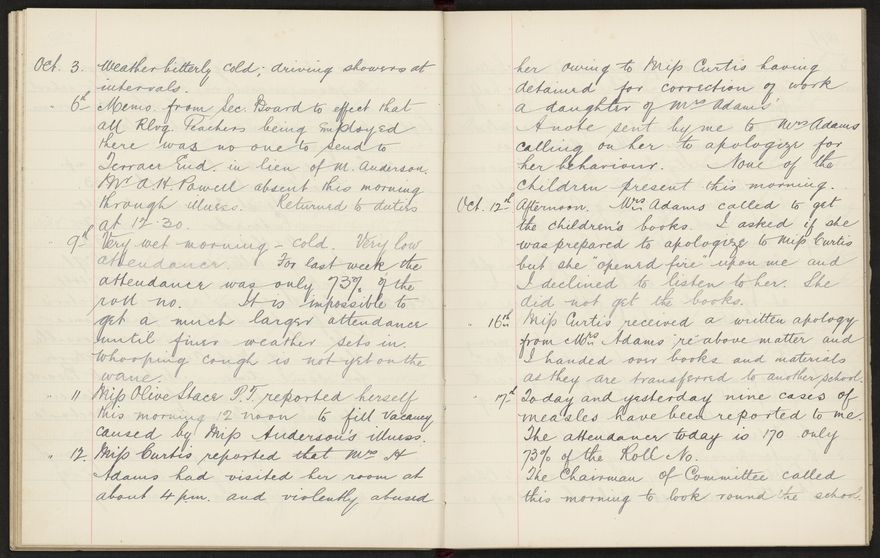 Oct. 3. Weather bitterly cold; driving showers at
intervals.
" 6th Memo. from Sec. Board to effect that
all Rlvg. Teachers being employed
there was no one to send to
Terrace End. in lieu of M. Anderson.
Mr A.H. Powell absent this morning
through illness. Returned to duties
at 12.30.
" 9th Very wet morning - cold. Very low
attendance. For last week the
attendance was only 73% of the
roll no. It is impossible to
get a much larger attendance
until finer weather sets in.
Whooping cough is not yet on the
wane.
" 11 Miss Olive Stace P.T. reported herself
this morning 12 noon to fill vacancy
caused by Miss Anderson's illness.
" 12 Miss Curtis reported that Mrs H
Adams had visited her room at
about 4 pm. and violently abused
her owing to Miss Curtis having
detained for correction of work
a daughter of Mrs Adams'
A note sent by me to Mrs Adams
calling on her to apologize for
her behaviour. None of the
children present this morning.
Oct. 12th Afternoon. Mrs Adams called to get
the children's books. I asked if she
was prepared to apologize to Miss Curtis
but she "opened fire" upon me and
I declined to listen to her. She
did not get the books.
" 16th Miss Curtis received a written apology
from Mrs Adams re above matter and
I handed over books and materials
as they are transferred to another school.
" 17th Today and yesterday nine cases of
measles have been reported to me.
The attendance today is 170 only
73% of the Roll No.
The Chairman of Committee called
this morning to look round the school.